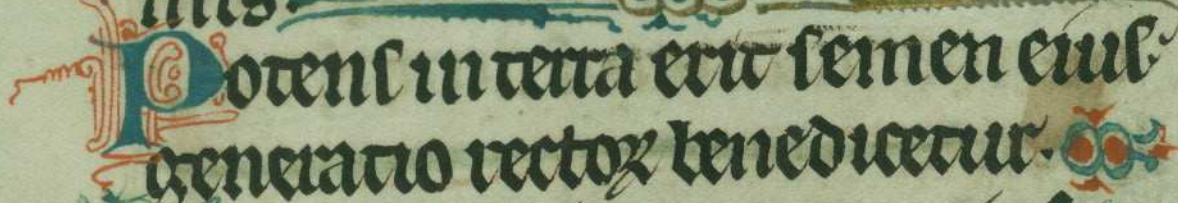 Potens in terra erit semen eius·
generatio rectoꝝ benedicetur·